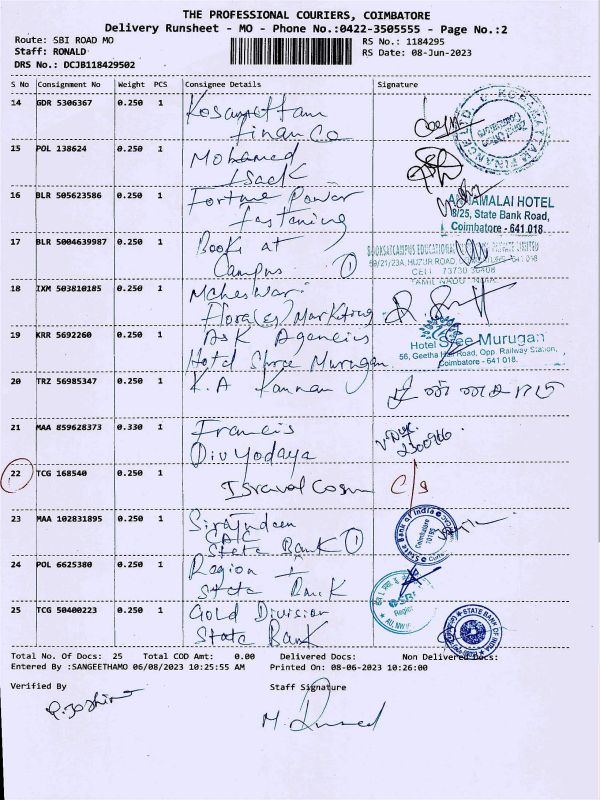 THE PROFESSIONAL COURIERS, COIMBATORE
Delivery Runsheet - MO - Phone No.:0422-3505555 - Page No.:2
Route: SBI ROAD MO
RS No.: 1184295
Staff: RONALD
RS Date: 08-Jun-2023
DRS No.: DCJB118429502
S No Consignment No Weight PCS Consignee Details Signature
14 GDR 5306367 0.250 1 Kosamattam
Finan Co
15 POL 138624 0.250 1 Mohamed
Isack
16 BLR 505623586 0.250 1 Fortune Power
Fastening
ANNAMALAI HOTEL
8/25, State Bank Road,
Coimbatore - 641 018.
17 BLR 5004639987 0.250 1 Books at
Campus 1
BOOKSATCAMPUS EDUCATIONAL PRIVATE LIMITED
50/21/23A, HUZUR ROAD, 641 018
CELL 73730
TAMIL NADU INDIA
18 IXM 503810185 0.250 1 Maheswari
Flora(es) Marketing
19 KRR 5692260 0.250 1 Ask Agencies
Hotel Shree Murugan
Hotel Sree Murugan
56, Geetha Hall Road, Opp. Railway Station,
Coimbatore - 641 018.
20 TRZ 56985347 0.250 1 K.A Kannan
21 MAA 859628373 0.330 1 Francis
Divyodaya
22 TCG 168540 0.250 1
23 MAA 102831895 0.250 1 Sirajudeen
CAC
State Bank 1
State Bank of India
Coimbatore
24 POL 6625380 0.250 1 Region I
State Bank
SBI
25 TCG 50400223 0.250 1 Gold Division
State Bank
STATE BANK OF INDIA
Total No. Of Docs: 25 Total COD Amt: 0.00 Delivered Docs: Non Delivered Docs:
Entered By :SANGEETHAMO 06/08/2023 10:25:55 AM Printed On: 08-06-2023 10:26:00
Verified By Staff Signature